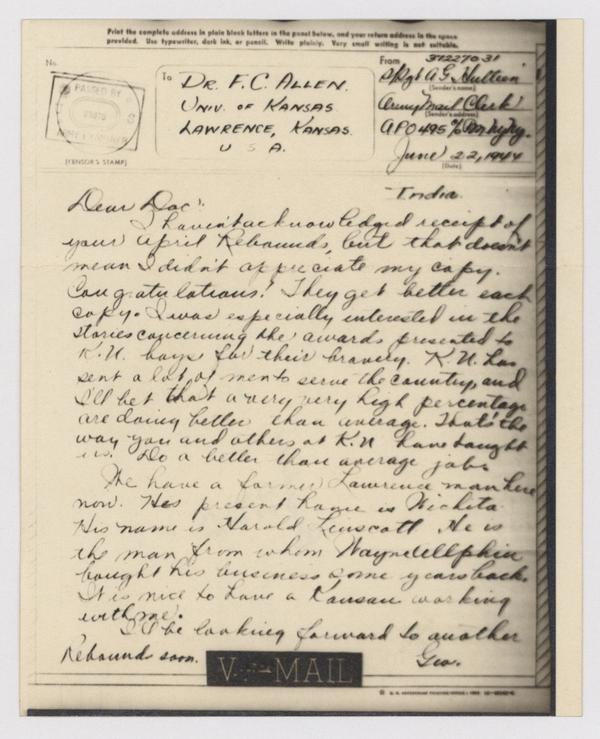 Print the complete address in plain block letters in the panel below, and your return address in the space
provided. Use typewriter, dark ink, or pencil. Write plainly. Very small writing is not suitable.
No.
PASSED BY
(CENSOR'S STAMP)
To
DR. F. C. ALLEN.
UNIV. OF KANSAS
LAWRENCE, KANSAS.
U S A.
From 37227031
S/Sgt A G Hullteen
(Sender's name)
Army Mail Clerk
(Sender's address)
APO 495 % PM Ny Ny.
June 22, 1944
(Date)
India.
Dear Doc:
I haven't acknowledged receipt of
your April Rebounds, but that doesn't
mean I didn't appreciate my copy.
Congratulations! They get better each
copy. I was especially interested in the
stories concerning the awards presented to
K.U. boys for their bravery. K.U. has
sent a lot of men to serve the country, and
I'll bet that a very very high percentage
are doing better than average. That's the
way you and others at K.U. have taught
us. Do a better than average job.
We have a former Lawrence man here
now. His present home is Wichita.
His name is Harold Linscott He is
the man from whom Wayne
bought his business some years back.
It is nice to have a Kansan working
with me.
I'll be looking forward to another
Rebounds soon.
Geo.
V-MAIL